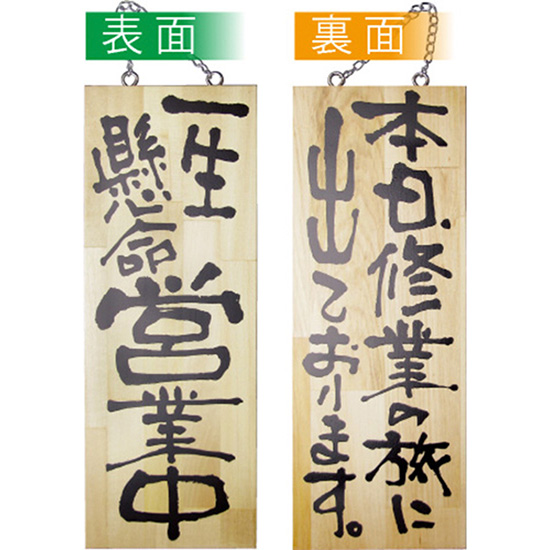 表面
一生
懸命
営業中
裏面
本日、修業の旅に
出ております。